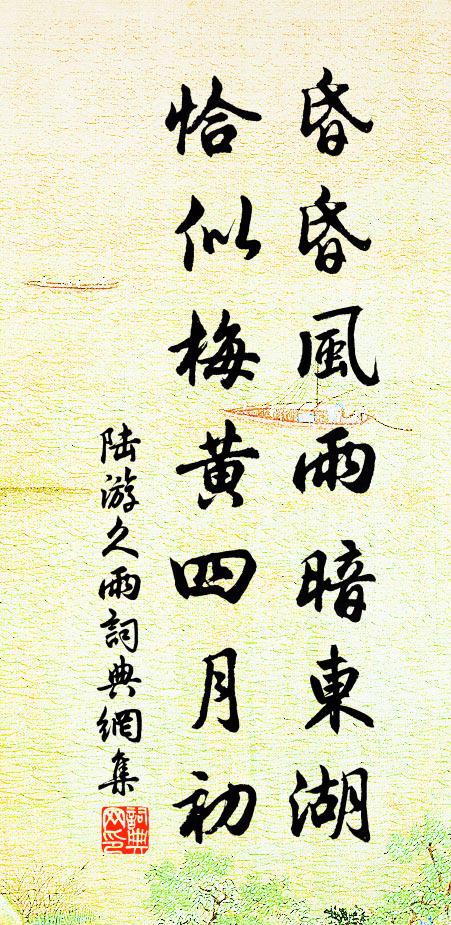 昏昏風雨暗東湖
恰似梅黄四月初
陆游久雨詞典網集
詞典网印